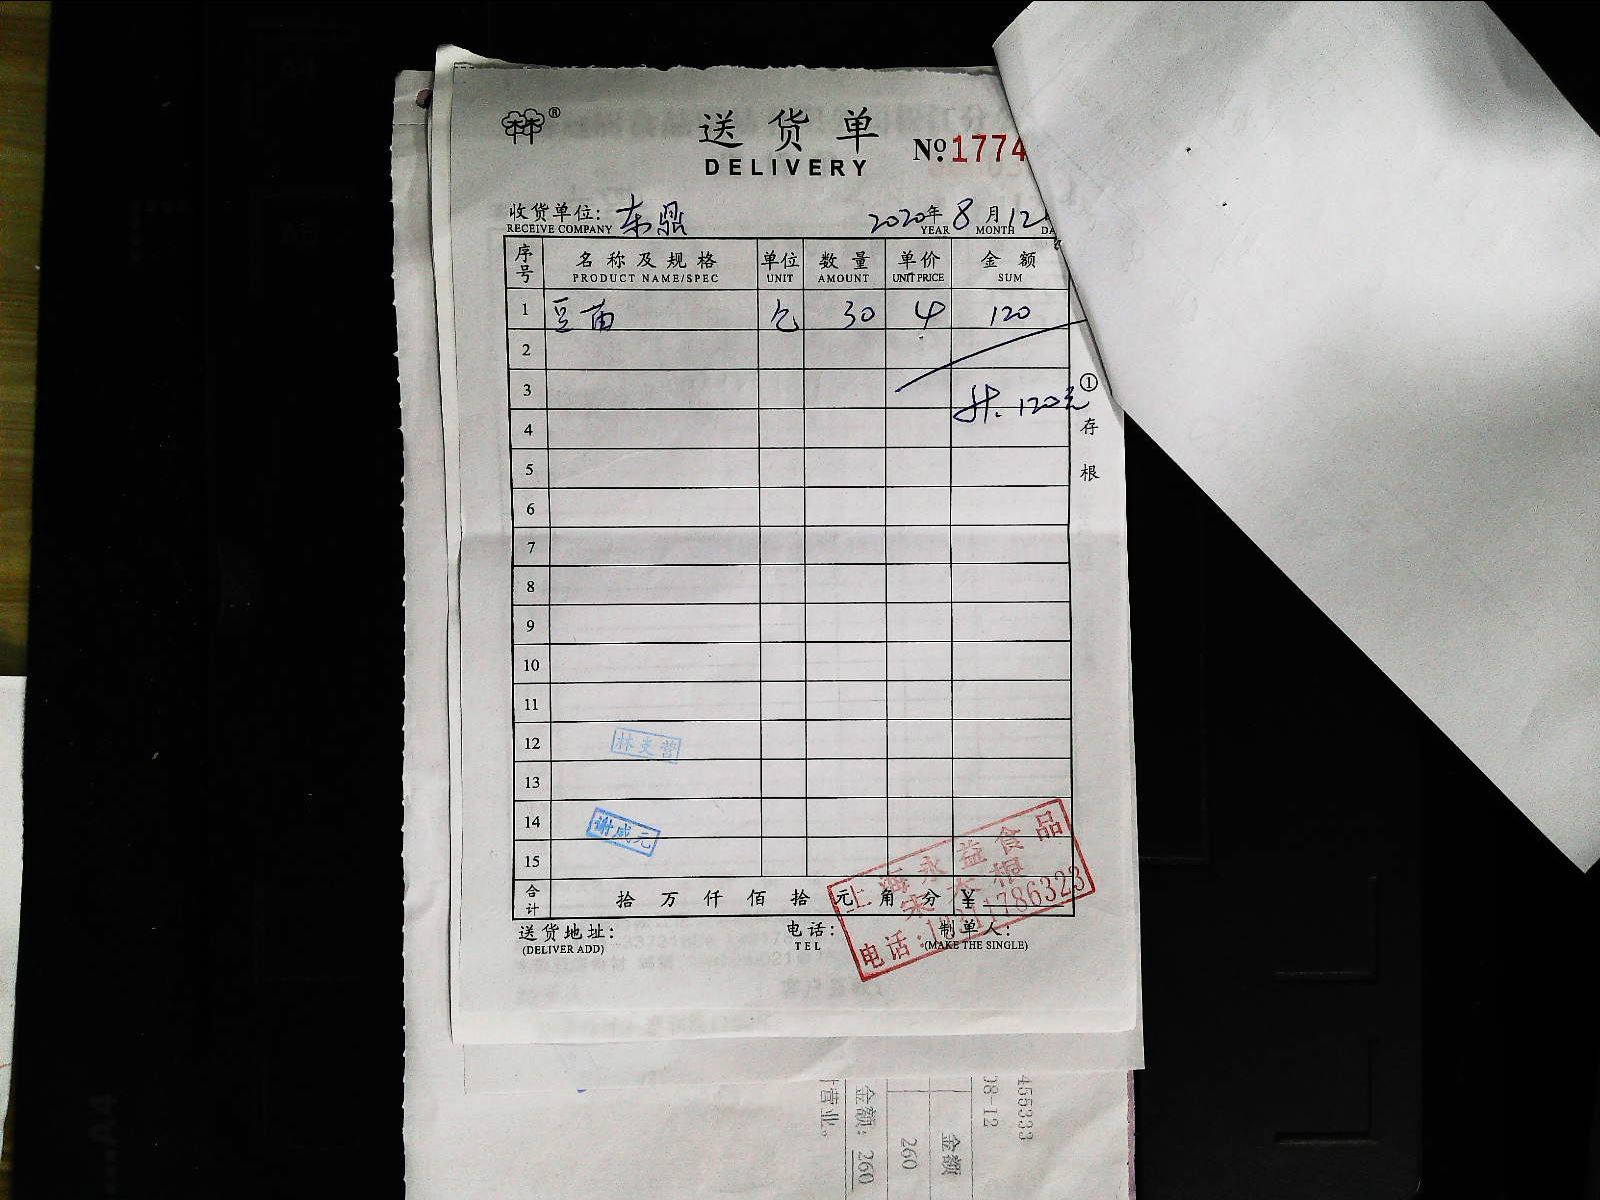 林林®
送货单
DELIVERY
№ 1774
收货单位: 东鼎
RECEIVE COMPANY
2020年 8月 12
YEAR MONTH DA
序号 名称及规格 单位 数量 单价 金额
PRODUCT NAME/SPEC UNIT AMOUNT UNIT PRICE SUM
1 豆苗 包 30 4 120
2
3
共. 120元
4
5
6
7
8
9
10
11
12
13
14
15
① 存根
谢咸元
合计 拾 万 仟 佰 拾 元 角 分 ¥
上海永益食品
电话:
送货地址: 电话: 制单人:
(DELIVER ADD) TEL (MAKE THE SINGLE)
455333
08-12
金额
260
金额: 260
营业。
A4